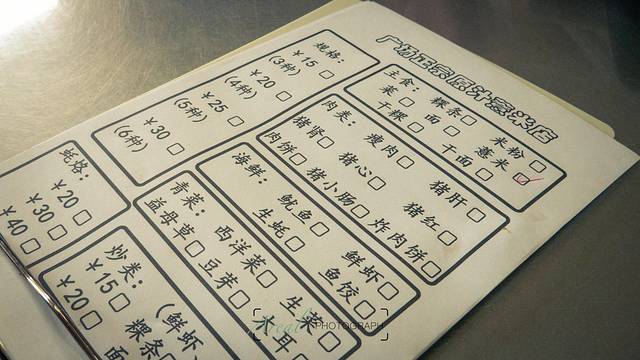 广场正宗原汁薏米店
规格:
￥15
(3种)
￥20
(4种)
￥25
(5种)
￥30
(6种)
主食: 粿条 米粉
菜 面 薏米
干粿 干面
肉类: 瘦肉 猪肝
猪肾 猪心 猪红
肉饼 猪小肠 炸肉饼
海鲜: 鱿鱼 鲜虾
生蚝 鱼饺
青菜: 西洋菜 生菜
益母草 豆芽
耳
蚝烙:
￥20
￥30
￥40
炒类: (鲜虾
￥15 粿条
￥20 面
PHOTOGRAPH